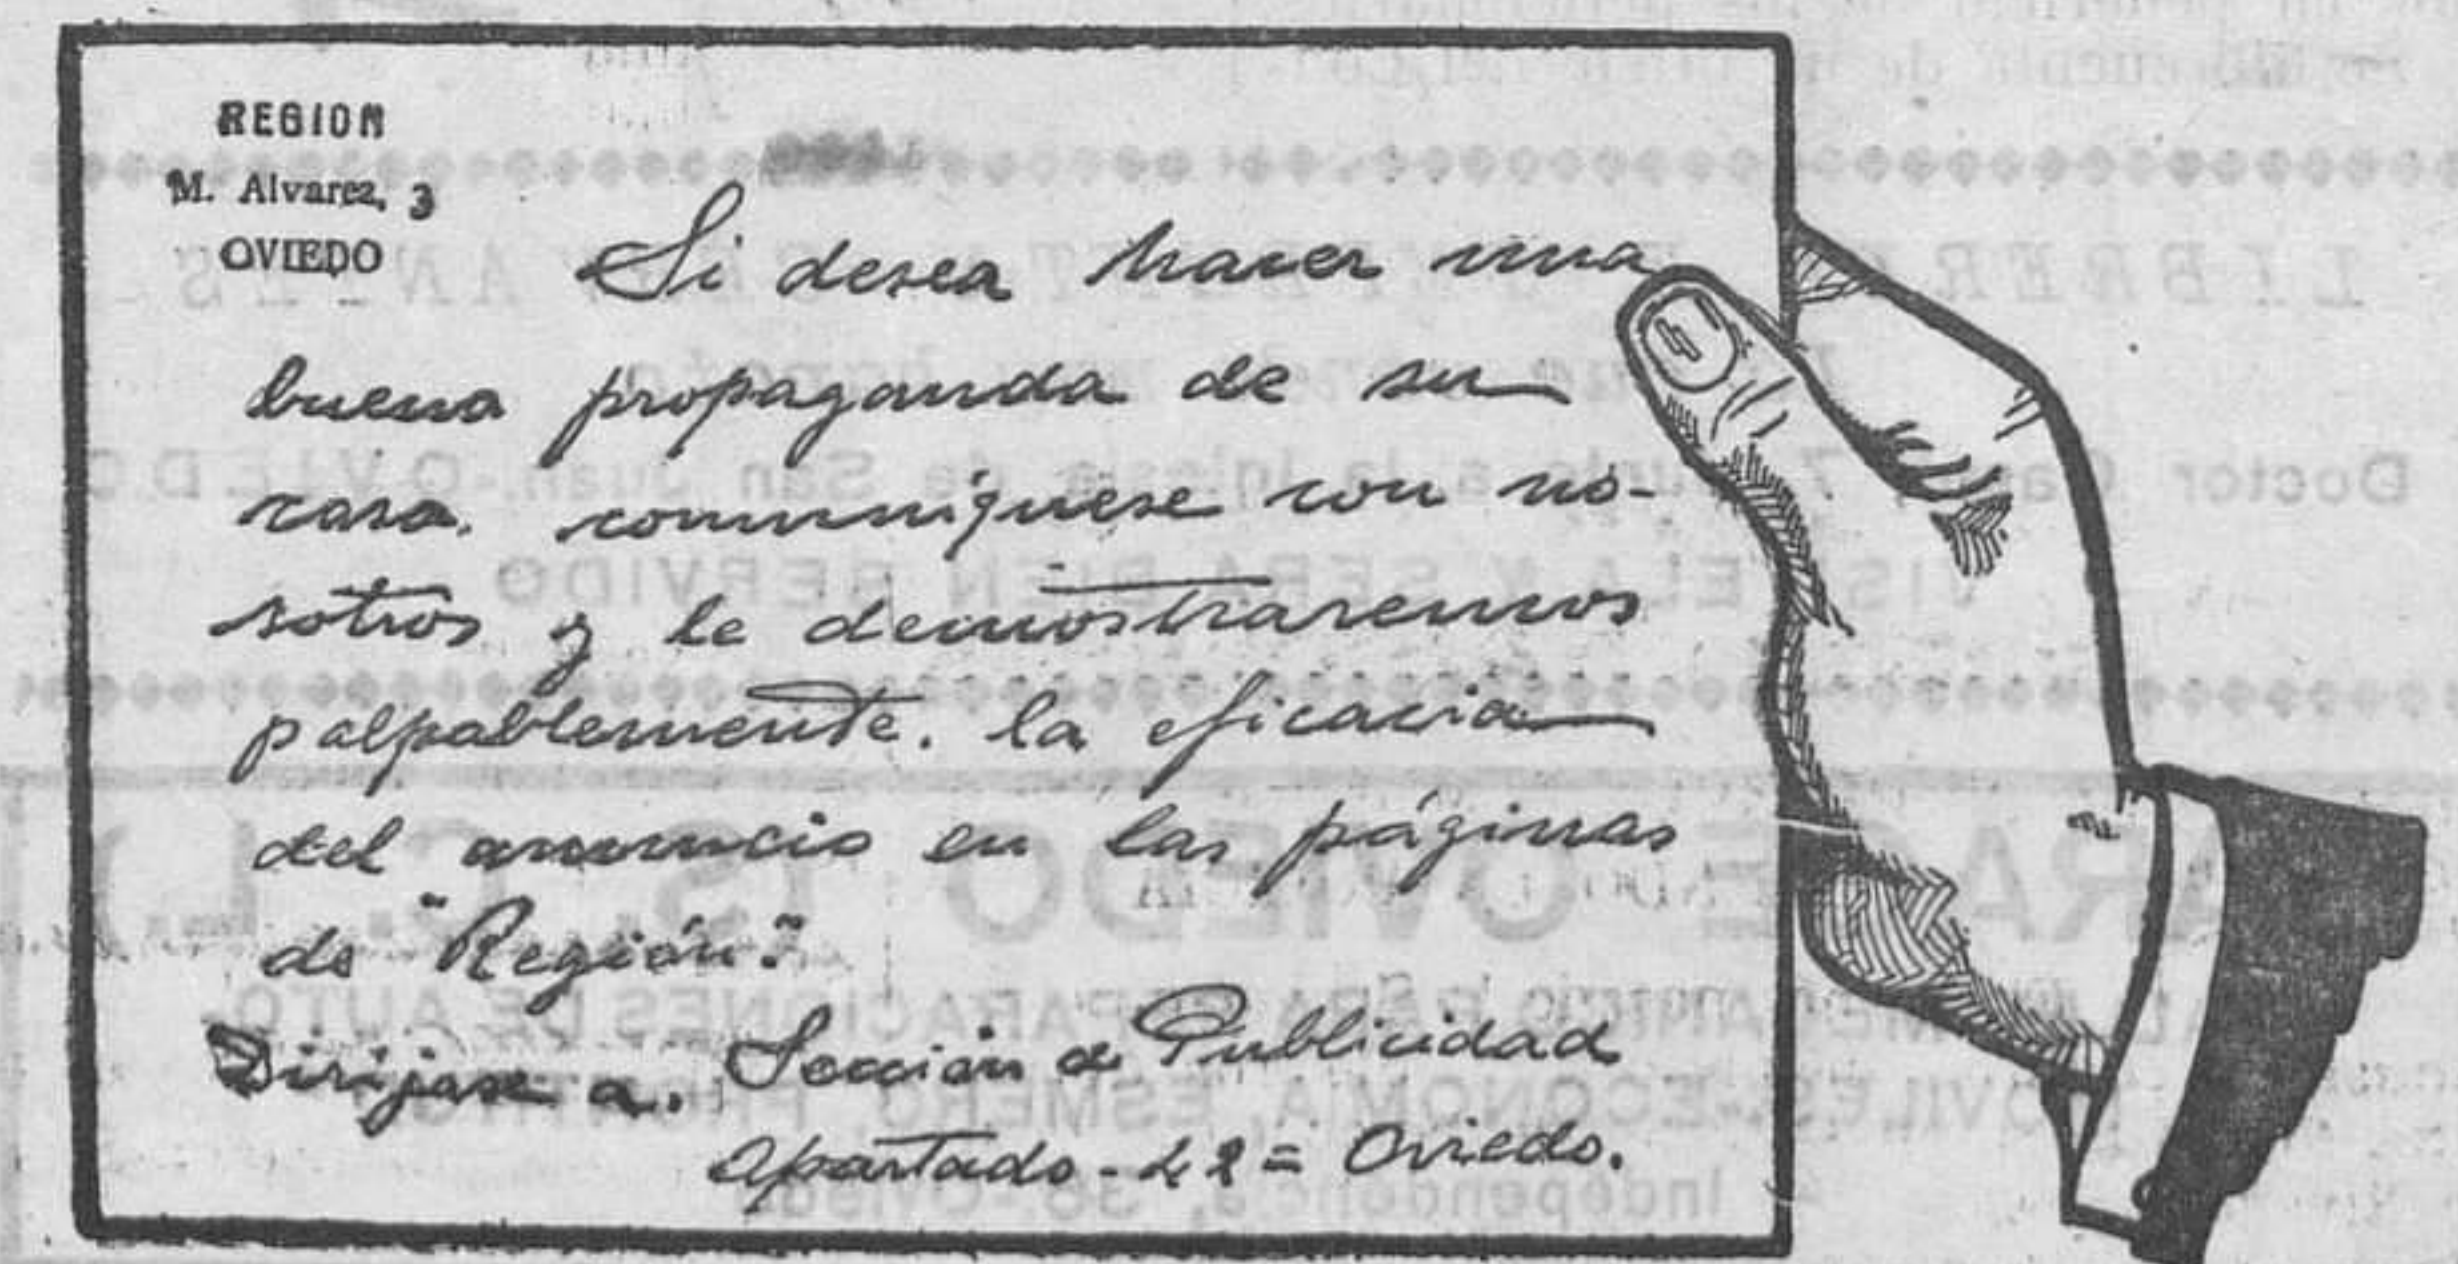 REGION
M. Alvarez, 3
OVIEDO
Si desea hacer una
buena propaganda de su
casa, comuníquese con no-
sotros y le demostraremos
palpablemente. la eficacia
del anuncio en las páginas
de "Región".
Dirijase a. Sección de Publicidad
Apartado - 42 = Oviedo.